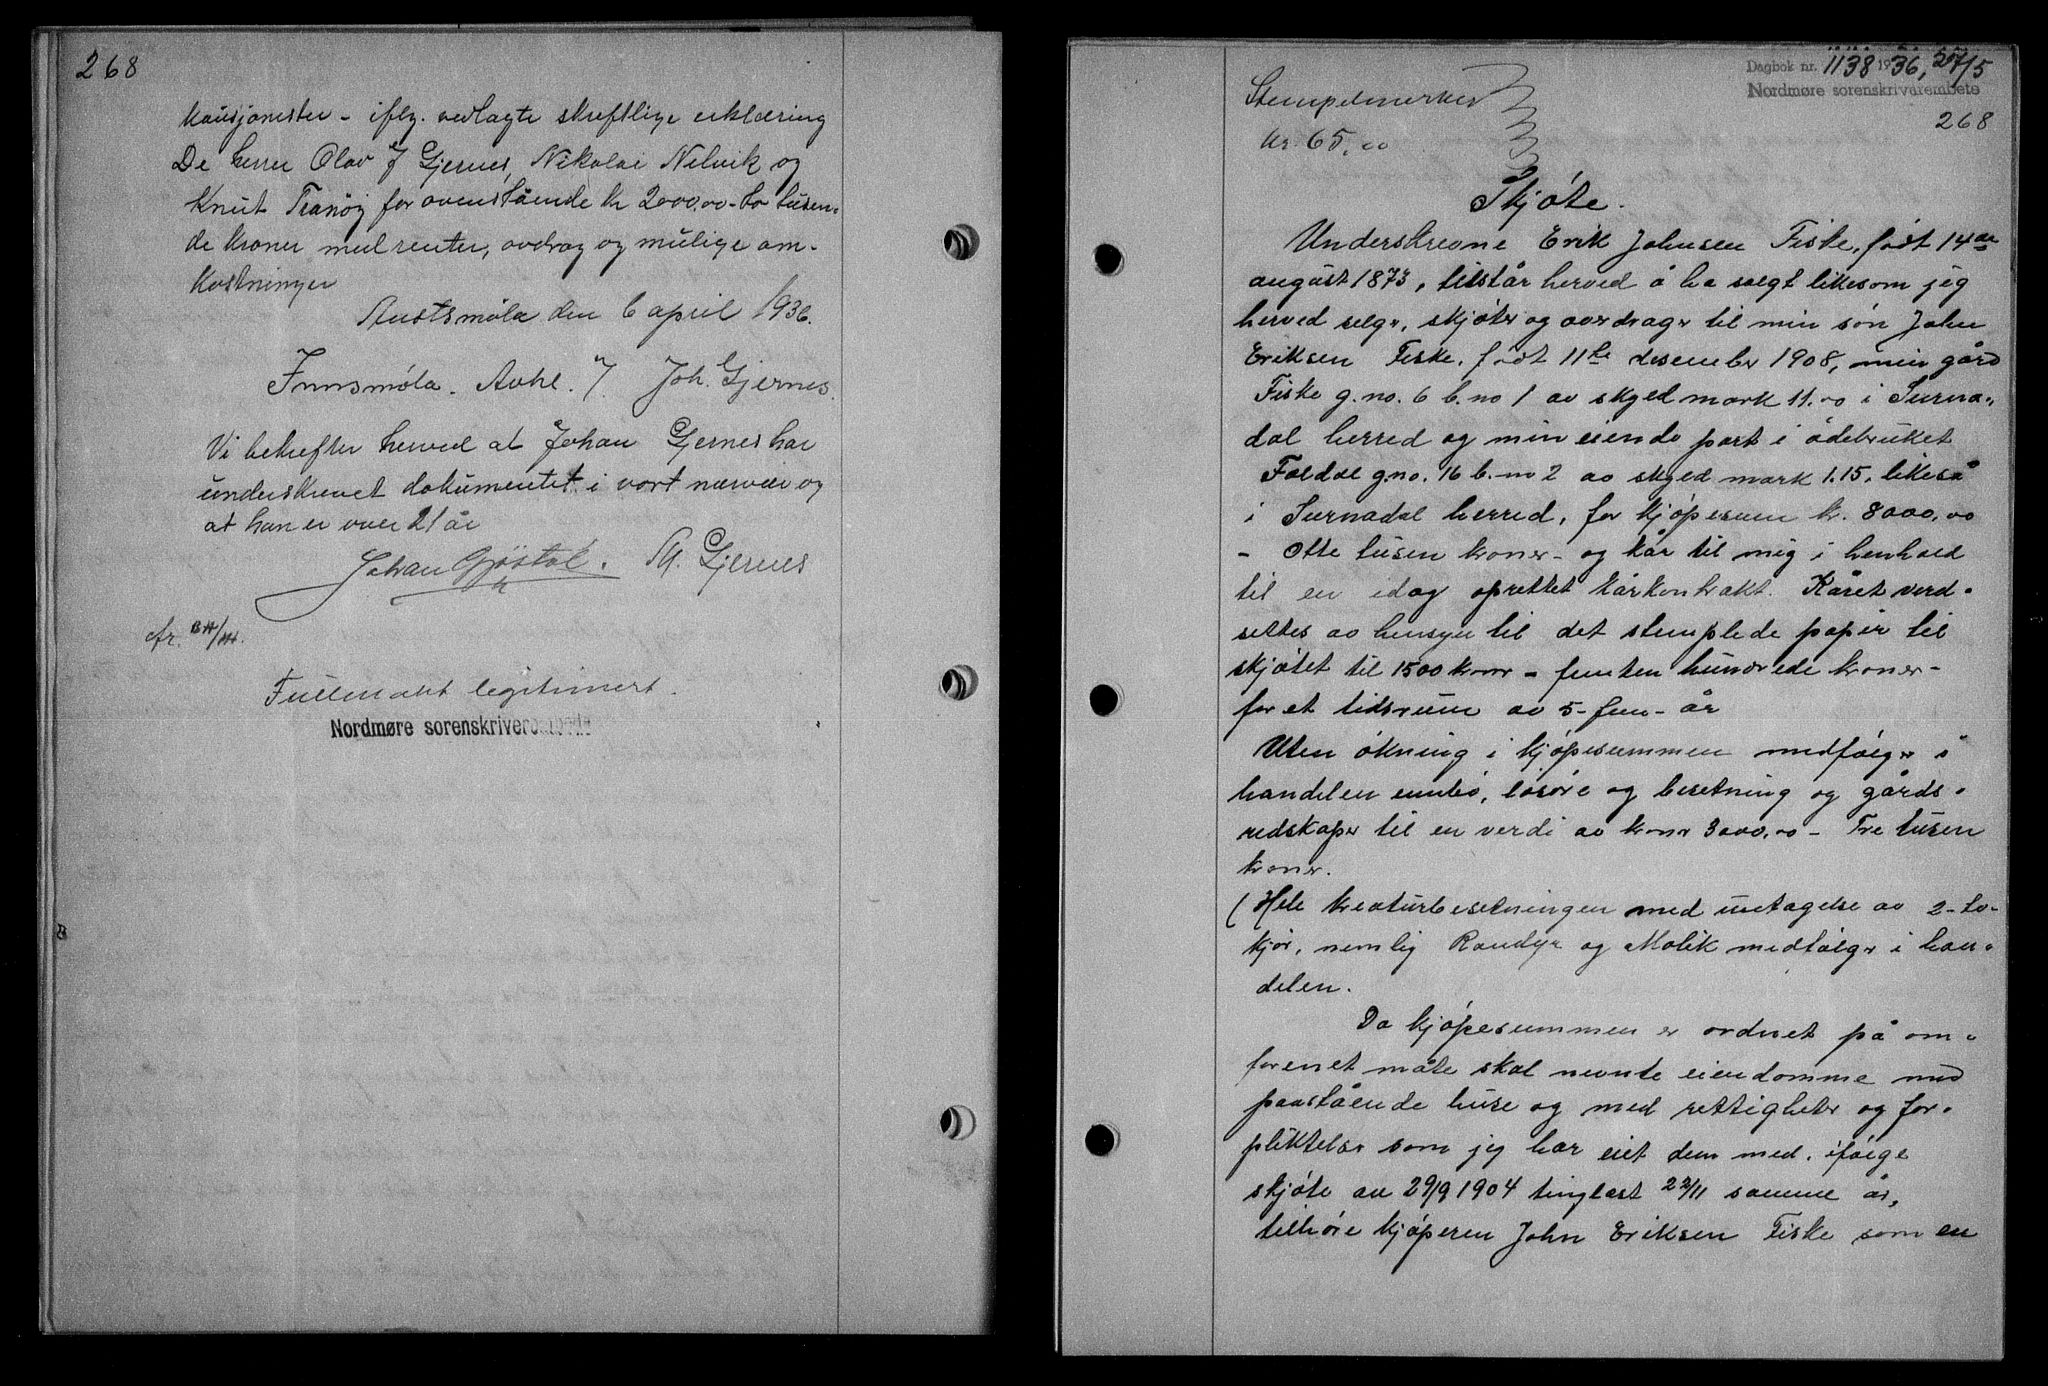 268
Kausjonister - iflg. vedlagte skriftlige erklæring
De herrer Olav J Gjernes, Nikolai Nelvik og
Knut Tranöy for ovenstående kr 2000,00 - to tusen-
de kroner med renter, avdrag og mulige om-
kostninger
Austsmöla den 6 april 1936.
Innsmöla. Avhl. 7. Joh. Gjernes.
Vi bekrefter herved at Johan Gjernes har
underskrevet dokumentet i vort nærvær og
at han er over 21 år
Johan Gjöstøl. M. Gjernes
Fullmakt legitimert.
Nordmøre sorenskriverembete
Dagbok nr. 1138 1936, 27/5
Nordmøre sorenskriverembete
268
Stempelmerker
kr. 65,00
Skjöte.
Underskrevne Erik Johnsen Fiske, födt 14de
august 1873, tilstår herved å ha solgt likesom jeg
herved selger, skjöter og overdrager til min sön John
Eriksen Fiske, födt 11te desember 1908, min gård
Fiske g.no. 6 b.no 1 av skyld mark 11.00 i Surna-
dal herred og min eiende part i ödebruket
Foldal g.no. 16 b.no 2 av skyld mark 1.15, likeså
i Surnadal herred, for kjöpesum kr. 8000,00
- Otte tusen kroner - og kår til mig i henhold
til en idag oprettet kårkontrakt. Kåret verd-
settes av hensyn til det stemplede papir til
skjötet til 1500 kroner - femten hundrede kroner -
for et tidsrum av 5 - fem - år
Uten ökning i kjöpesummen medfölger i
handelen innbo, lösöre og besetning og gårds-
redskaper til en verdi av kroner 3000,00 - Tre tusen
kroner.
(Hele kreaturbesetningen med untagelse av 2 - to -
kjör, nemlig Raudyr og Molik medfölger i han-
delen.
Da kjöpesummen er ordnet på om-
forenet måte skal nevnte eiendomme med
paastående huse og med rettigheter og for-
pliktelser som jeg har eiet dem med, ifölge
skjöte av 29/9 1904 tinglæst 22/11 samme år,
tilhöre kjöperen John Eriksen Fiske som en